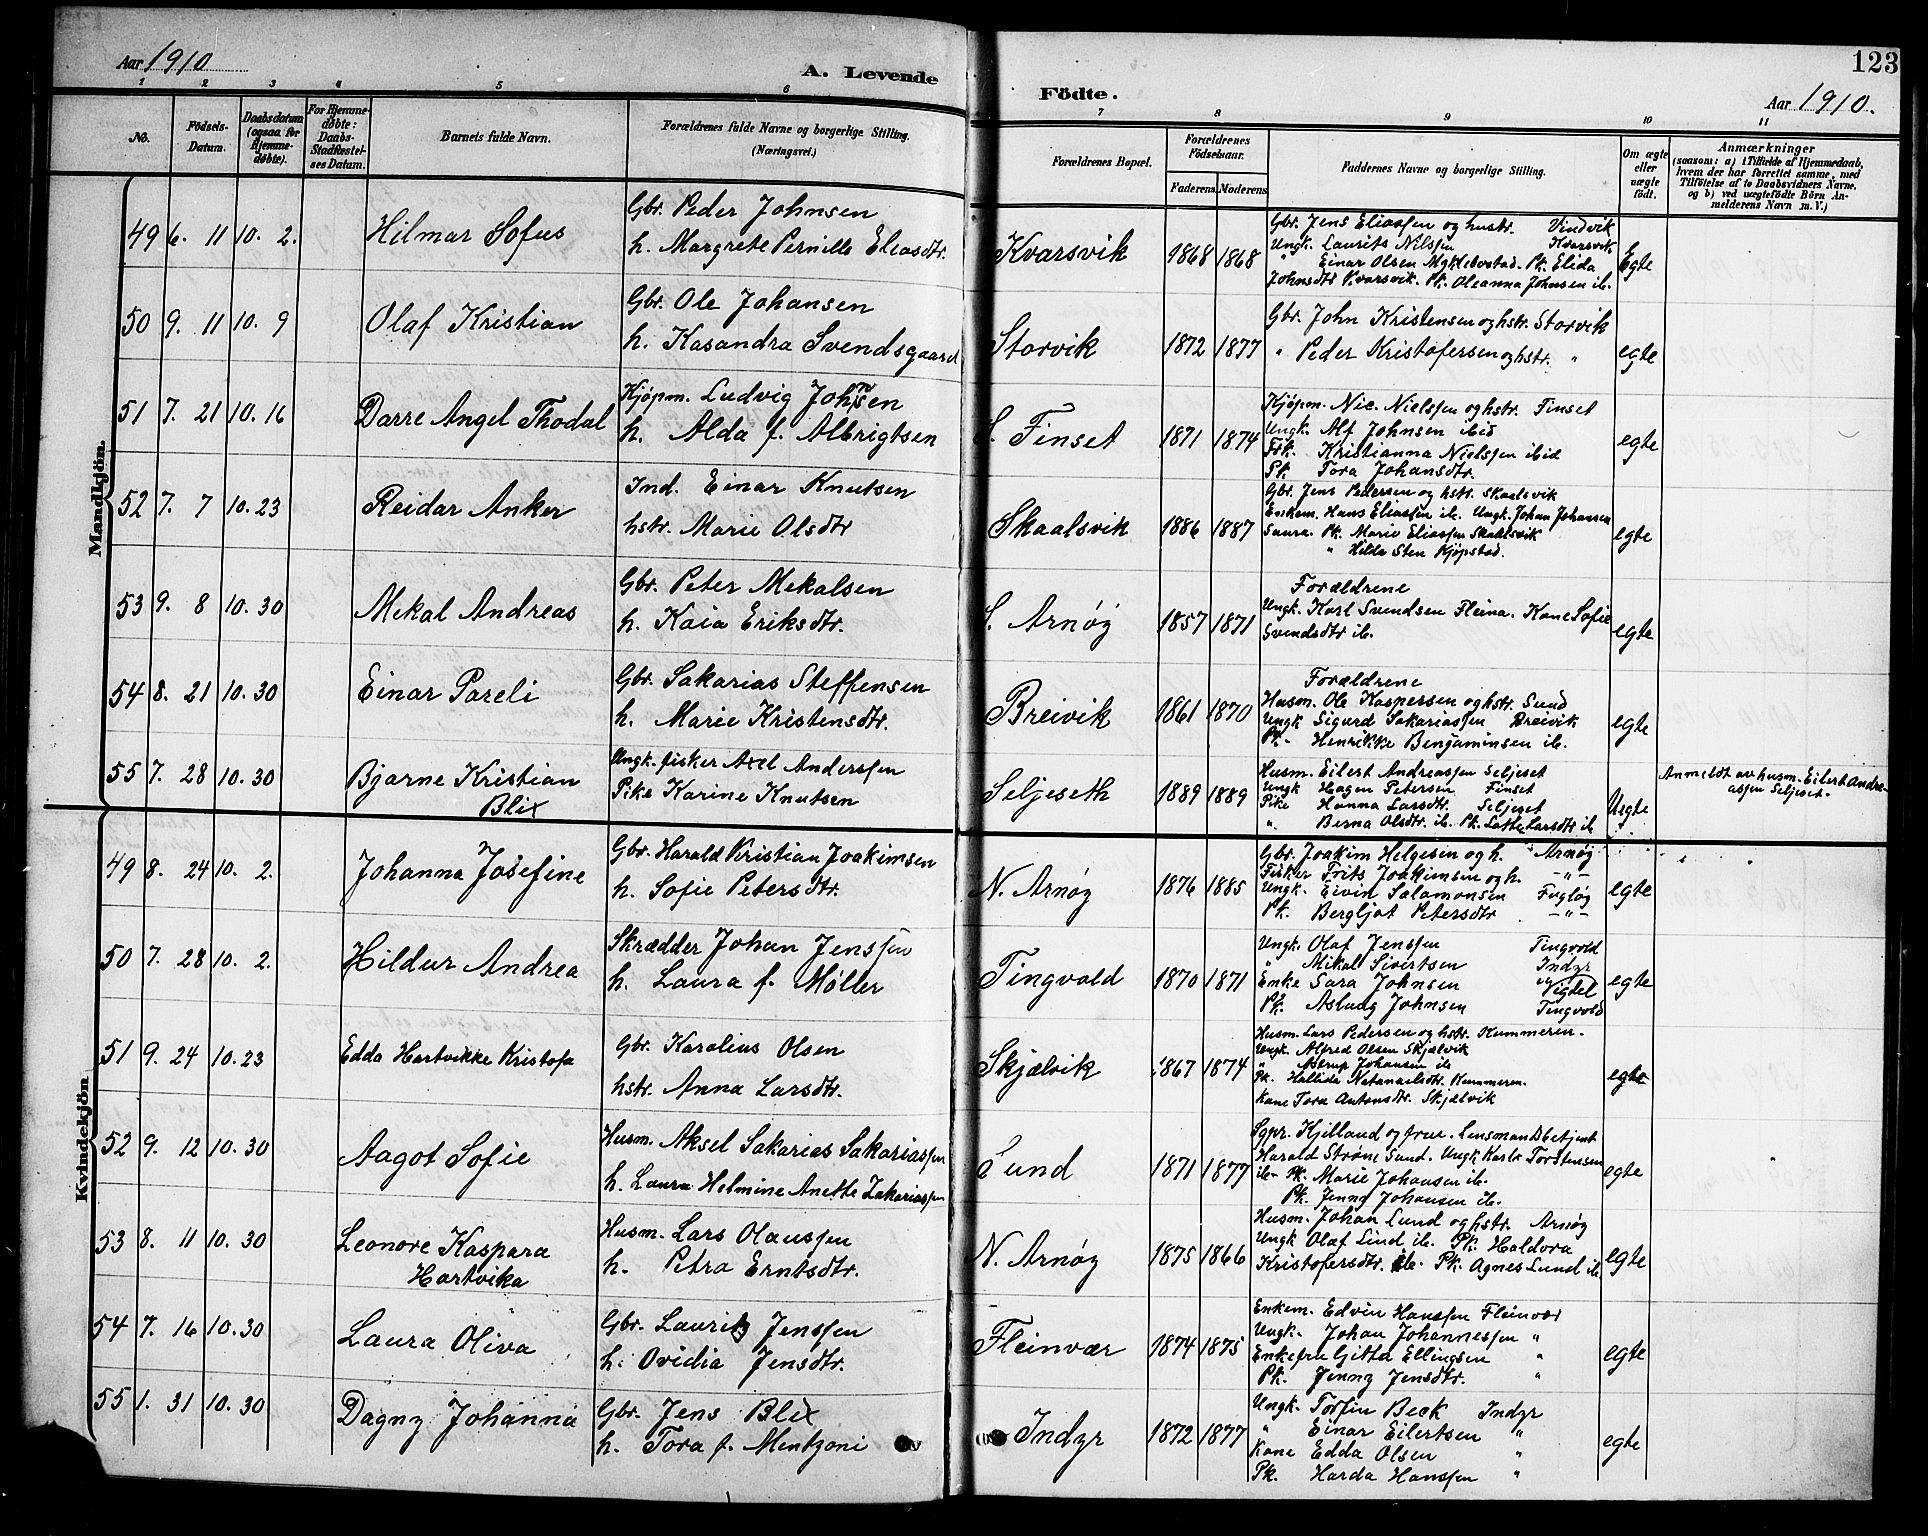 Aar 1910
A. Levende
Födte.
Aar 1910.
123
1 2 3 4 5 6 7 8 9 10 11
No.
Födsels-
Datum.
Daabsdatum
(ogsaa for
Hjemme-
døbte).
For Hjemme-
døbte:
Daabs-
Stadfæstel-
ses Datum.
Barnets fulde Navn.
Forældrenes fulde Navne og borgerlige Stilling.
(Næringsvei.)
Forældrenes Bopæl.
Forældrenes
Födselsaar.
Faderens. Moderens.
Faddernes Navne og borgerlige Stilling.
Om ægte
eller
uægte
födt.
Anmærkninger
(saasom: a) i Tilfælde af Hjemmedaab,
hvem der har forrettet samme, med
Tilföielse af to Daabsvidners Navne.
og b) ved uægtefödte Börn An-
melderens Navn m. V.)
Mandkjön.
49 6. 11 10. 2. Hilmar Sofus
Gbr. Peder Johnsen
h. Margrete Pernille Eliasdtr.
Kvarsvik 1868 1868
Gbr. Jens Eliassen og hustr. Vindvik
Ungk. Laurits Nilssen Kvarsvik
" Einar Olsen Myklebostad. Pk. Elida
Johnsdtr Kvarsvik. Pk. Oleanna Johnsen ib.
Egte
50 9. 11 10. 9 Olaf Kristian
Gbr. Ole Johansen
h. Kasandra Svendsgaard
Storvik 1872 1877
Gbr. John Kristensen og hstr. Storvik
" Peder Kristofersen og hstr. "
egte
51 7. 21 10. 16 Darre Angel Thodal
Kjøpm. Ludvig Johnsen
h. Alda f. Albrigtsen
S. Finset 1871 1874
Kjøpm. Nic. Nielssen og hstr. Finset
Ungk. Alf Johnsen ibid
Frk. Kristianna Nielssen ibid
Pk. Tora Johansdtr.
egte
52 7. 7 10. 23 Reidar Anker
Ind. Einar Knutsen
hstr. Marie Olsdtr
Skaalsvik 1886 1887
Gbr. Jens Pedersen og hstr. Skaalsvik
Enkem. Hans Eliassen ib. Ungk. Johan Johansen
Saura. Pk. Marie Eliassen Skaalsvik
" Hilda Sten Kjøpstad.
egte
53 9. 8 10. 30 Mekal Andreas
Gbr. Peter Mekalsen
h. Kaia Eriksdtr.
S. Arnøy 1857 1871
Forældrene
Ungk. Karl Svendsen Fleina. Kone Sofie
Svendsdtr ib.
egte
54 8. 21 10. 30 Einar Pareli
Gbr. Sakarias Steffensen
h. Marie Kristensdtr.
Breivik 1861 1870
Forældrene
Husm. Ole Kaspersen og hstr. Sund
Ungk Sigurd Sakariassen Breivik
Pk. Henrikke Benjaminsen ib.
egte
55 7. 28 10. 30 Bjarne Kristian
Blix
Ungk. fisker Axel Anderssen
Pike Karine Knutsen
Seljeseth 1889 1889
Husm. Eilert Andreassen Seljeset
Ungk Hagen Petersen Finset
Pike Hanna Larsdtr. Seljeset
" Berna Olsdtr. ib. Pk. Lotte Larsdtr ib
Uegte
Anmeldt av husm. Eilert Andre-
assen Seljeset.
Kvindekjön
49 8. 24 10. 2. Johanna Josefine
Gbr. Harald Kristian Joakimsen
h. Sofie Petersdtr.
N. Arnøy 1876 1885
Gbr. Joakim Helgesen og h. Arnøy
Fisker Frits Joakimsen og h. -"-
Ungk. Eivin Salamonsen Fugløy
Pk. Bergljot Petersdtr -"-
egte
50 7. 28 10. 2. Hildur Andrea
Skrædder Johan Jenssen
h. Laura f. Møller
Tingvold 1870 1871
Ungk. Olaf Jenssen Tingvold
" Mikal Sivertsen Indyr
Enke Sara Johnsen Vigdel
Pk. Aslaug Johnsen Tingvold
egte
51 9. 24 10. 23 Edda Hartvikke Kristofa
Gbr. Karolius Olsen
hstr. Anna Larsdtr.
Skjælvik 1867 1874
Husm. Lars Pedersen og hstr. Kummeren.
Ungk. Alfred Olsen Skjælvik
" Astrup Johansen ib
Pk. Hallida Natanaelsdtr. Kummeren.
Kone Tora Antonsdtr. Skjælvik
egte
52 9. 12 10. 30 Aagot Sofie
Husm. Aksel Sakarias Sakariassen
h. Laura Helmine Anette Zakariassen
Sund 1871 1877
Sgpr. Kjelland og frue. Lensmandsbetjent
Harald Strøm Sund. Ungk Karl Torstensen
ib- Pk. Marie Johansen ib.
Pk. Jenny Johansen ib.
egte
53 8. 11 10. 30 Leonore Kaspara
Hartvika
Husm. Lars Olaussen
h. Petra Erntsdtr.
N. Arnøy 1875 1866
Husm. Johan Lund og hstr. Arnøy
Ungk Olaf Lind ib. Pk. Haldora
Kristofersdtr. ib. Pk. Agnes Lund ib.
egte
54 7. 16 10. 30 Laura Oliva
Gbr. Lauritz Jenssen
h. Ovidia Jensdtr.
Fleinvær 1874 1875
Enkem. Edvin Hanssen Fleinvær
Ungk. Johan Johannessen "
Enkefru Gitta Ellingsen "
Pk. Jenny Jensdtr. "
egte
55 1. 31 10. 30 Dagny Johanna
Gbr. Jens Blix
h. Tora f. Mentzoni
Indyr 1872 1877
Ungk. Torfin Beck Indyr
" Einar Eilertsen "
Kone Edda Olsen "
Pk. Harda Hanssen "
egte